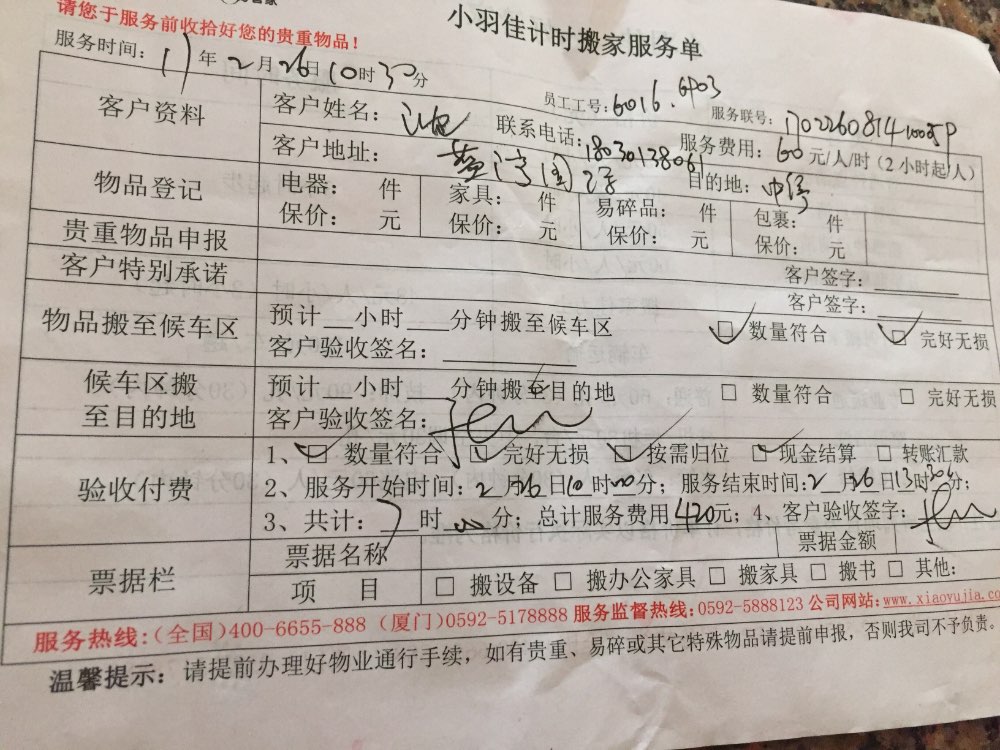 请您于服务前收拾好您的贵重物品！
小羽佳计时搬家服务单
服务时间：17年2月26日10时30分
员工工号：6016.6903
服务联号：
客户资料
客户姓名：
联系电话：18030138061
服务费用：60元/人/时（2小时起/人）
客户地址：
目的地：
物品登记
电器：件
家具：件
易碎品：件
包裹：件
保价：元
保价：元
保价：元
保价：元
贵重物品申报
客户签字：
客户特别承诺
客户签字：
物品搬至候车区
预计__小时___分钟搬至候车区
☑ 数量符合 ☑ 完好无损
客户验收签名：
候车区搬至目的地
预计 小时 分钟搬至目的地
□ 数量符合 □ 完好无损
客户验收签名：
验收付费
1、☑ 数量符合 ☑ 完好无损 ☑ 按需归位 ☑ 现金结算 □ 转账汇款
2、服务开始时间：2月26日10时00分；服务结束时间：2月26日13时30分；
3、共计：7时00分；总计服务费用420元；4、客户验收签字：
票据栏
票据名称
票据金额
项 目
□ 搬设备 □ 搬办公家具 □ 搬家具 □ 搬书 □ 其他：
服务热线：（全国）400-6655-888（厦门）0592-5178888 服务监督热线：0592-5888123 公司网站：www.xiaoyujia.co
温馨提示：请提前办理好物业通行手续，如有贵重、易碎或其它特殊物品请提前申报，否则我司不予负责。